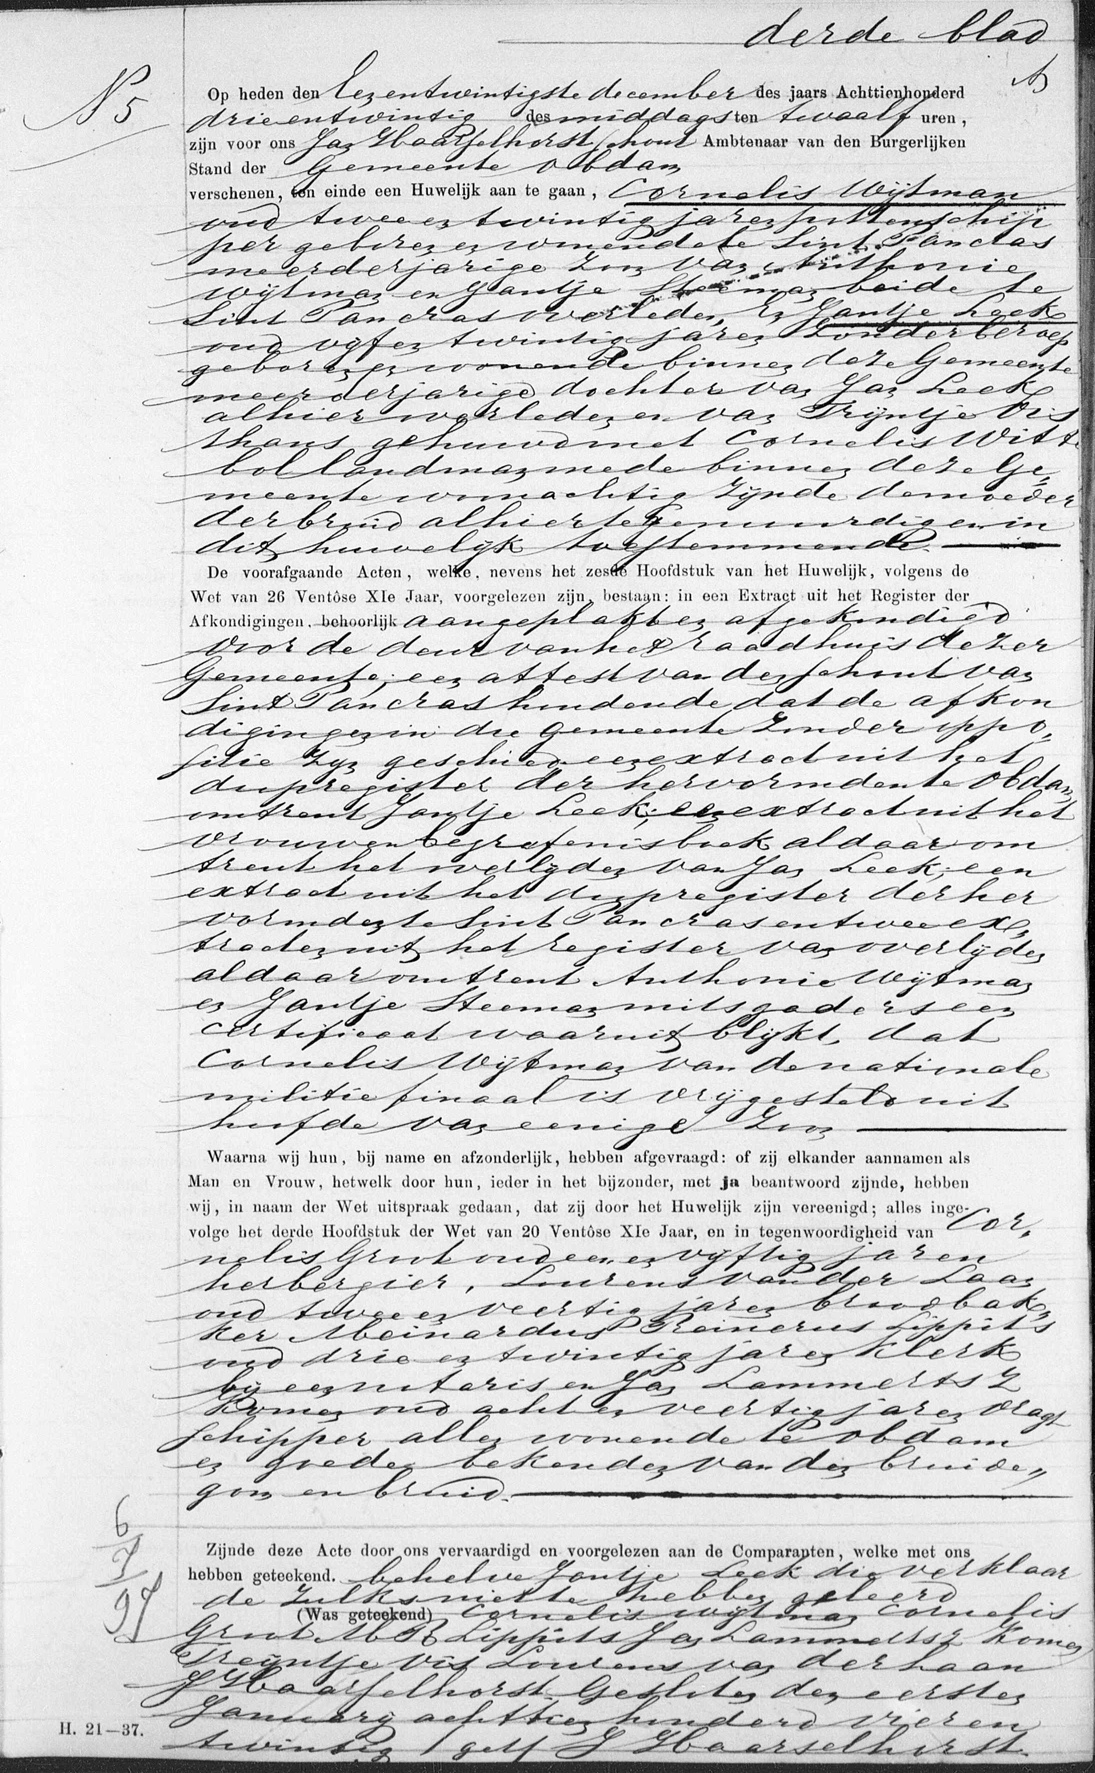 derde blad
N 5
Op heden den Eezentwintigste december des jaars Achttienhonderd
drieentwintig des middags ten twaalf uren,
zijn voor ons Jan Haarselhorst schout Ambtenaar van den Burgerlijken
Stand der Gemeente Obdam
verschenen, ten einde een Huwelijk aan te gaan, Cornelis Wijtman
oud twee en twintig jaren puttenschip
per geboren en wonende te Sint Pancras
meerderjarige zoon van Anthonie
Wijtman en Jantje Steeman beide te
Sint Pancras overleden, En Jantje Leek
oud vyf en twintig jaren zonder beroep
geboren en wonende binnen deze Gemeente
meerderjarige dochter van Jan Leek
alhier overleden en van Trijntje Vis
thans gehuwd met Cornelis Witte
bol landman mede binnen deze Ge„
meente woonachtig zijnde de moeder
der bruid alhier tegenwoordig en in
dit huwelijk toestemmende.
De voorafgaande Acten, welke, nevens het zesde Hoofdstuk van het Huwelijk, volgens de
Wet van 26 Ventôse XIe Jaar, voorgelezen zijn, bestaan: in een Extract uit het Register der
Afkondigingen, behoorlijk aangeplakt en afgekondigd
voor de deur van het raadhuis dezer
Gemeente; een attest van den schout van
Sint Pancras houdende dat de afkon
digingen in die gemeente zonder oppo„
sitie zyn geschied een extract uit het
doopregister der hervormden te Obdam
omtrent Jantje Leek; een extract uit het
vrouwen begrafenisboek aldaar om
trent het overlyden van Jan Leek; een
extract uit het doopregister der her
vormden te Sint Pancras en twee ex„
tracten uit het register van overlijden
aldaar omtrent Anthonie Wijtman
en Jantje Steeman mitsgaders een
certificaat waaruit blijkt, dat
Cornelis Wijtman van de nationale
militie finaal is vrijgesteld uit
hoofde van eenige zoon
Waarna wij hun, bij name en afzonderlijk, hebben afgevraagd: of zij elkander aannamen als
Man en Vrouw, hetwelk door hun, ieder in het bijzonder, met ja beantwoord zijnde, hebben
wij, in naam der Wet uitspraak gedaan, dat zij door het Huwelijk zijn vereenigd; alles inge-
volge het derde Hoofdstuk der Wet van 20 Ventôse XIe Jaar, en in tegenwoordigheid van Cor„
nelis Groot oud een en vyftig jaren
herbergier, Lourens van der Laan
oud twee en veertig jaren broodbak„
ker Meinardus Reinerus Lippits
oud drie en twintig jaren klerk
bij een notaris en Jan Lammerts Z
Komen oud acht en veertig jaren vragt
schipper allen wonende te Obdam
en goede bekenden van den bruide„
gom en bruid.
Zijnde deze Acte door ons vervaardigd en voorgelezen aan de Comparanten, welke met ons
hebben geteekend. behelve Jantje Leek die verklaar
de zulks niet te hebben geleerd
(Was geteekend) Cornelis Wijtman Cornelis
Groot M R Lippits Jan Lammertsz Komen
Treyntje Vis Lourens van der Laan
J Haarselhorst Gesloten den eersten
January achttienhonderd vier en
twintig / get / J Haarselhorst.
6
7
97
H. 21—37.